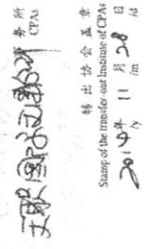 天职国际
务所
CPAs
转出协会盖章
Stamp of the transfer-out Institute of CPAs
年 11 月 28 日
/y /m /d